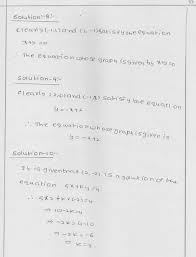 Solution-8:-
Clearly (-1,1) and (1,-1) satisfy the equation
x+y=0
∴ The equation whose graph is given by x+y=0
Solution-9:-
Clearly (2,0) and (-1,3) satisfy the equation
y=-x+2
∴ The equation whose graph is given is
y=-x+2
Solution-10:-
It is given that (2,-2) is a solution of the
equation 5x+ky=4
⇒10-2k=4
⇒-2k=4-10
⇒-2k=-6
⇒k=3.